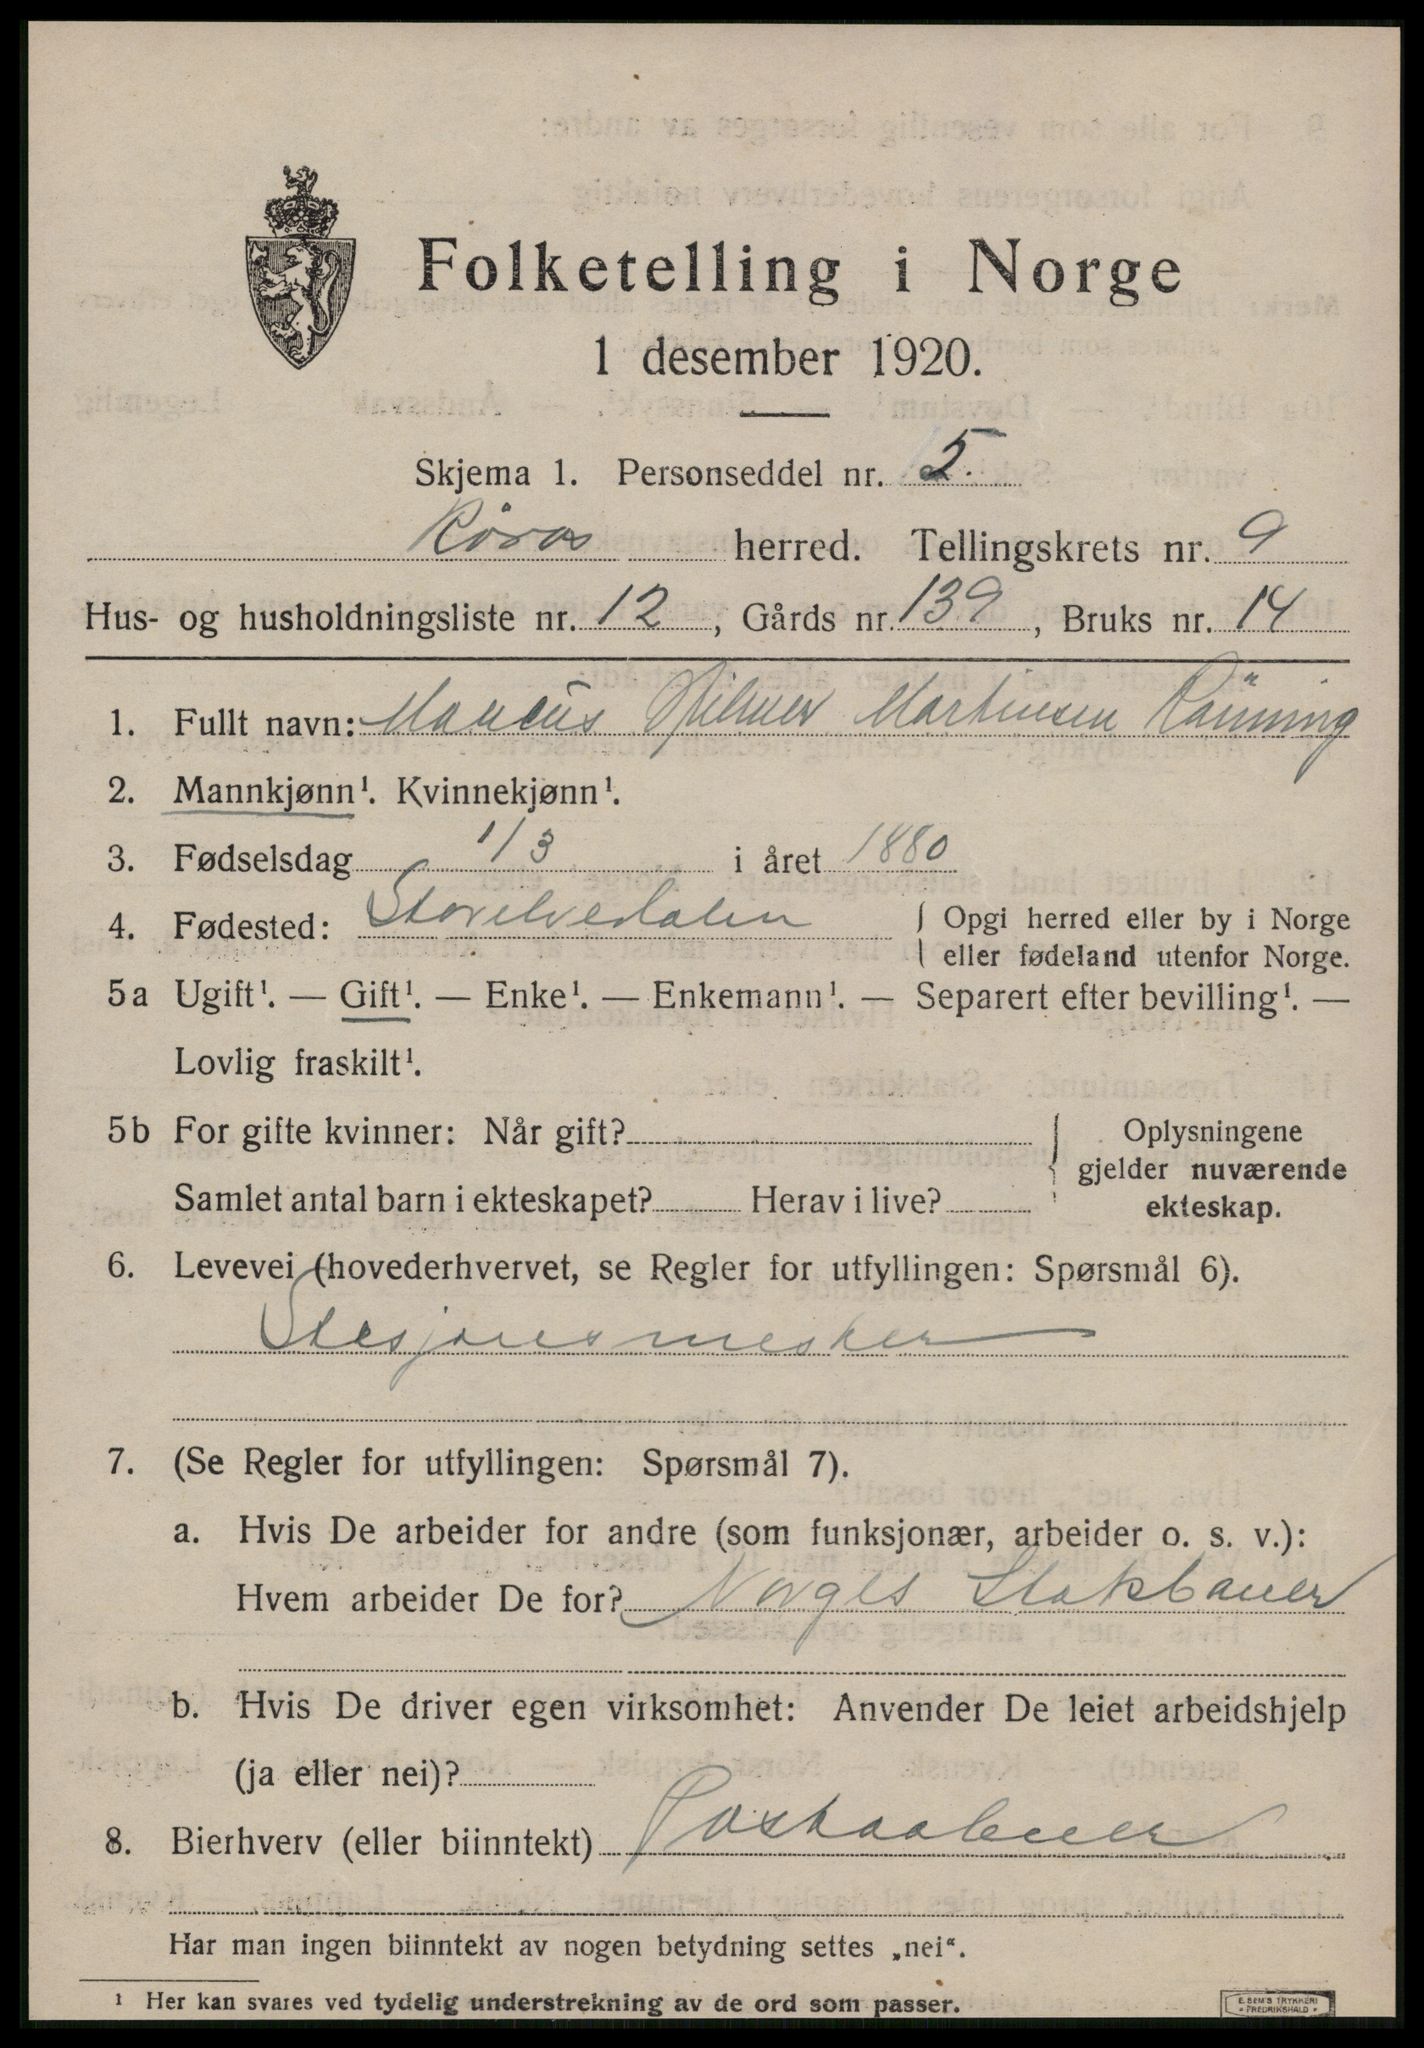 Folketelling i Norge
1 desember 1920.
Skjema 1. Personseddel nr. 5.
Røros herred. Tellingskrets nr. 9
Hus- og husholdningsliste nr. 12, Gårds nr. 139, Bruks nr. 14
1. Fullt navn: Marcus Hilmer Martinsen Rönning
2. Mannkjønn¹. Kvinnekjønn¹.
3. Fødselsdag 1/3 i året 1880
4. Fødested: Storelvedalen { Opgi herred eller by i Norge
eller fødeland utenfor Norge.
5a Ugift¹. — Gift¹. — Enke¹. — Enkemann¹. — Separert efter bevilling¹. —
Lovlig fraskilt¹.
5b For gifte kvinner: Når gift? { Oplysningene
gjelder nuværende
Samlet antal barn i ekteskapet? Herav i live? ekteskap.
6. Levevei (hovederhvervet, se Regler for utfyllingen: Spørsmål 6).
Stasjonsmester
7. (Se Regler for utfyllingen: Spørsmål 7).
a. Hvis De arbeider for andre (som funksjonær, arbeider o. s. v.):
Hvem arbeider De for? Norges Statsbaner
b. Hvis De driver egen virksomhet: Anvender De leiet arbeidshjelp
(ja eller nei)?
8. Bierhverv (eller biinntekt) Postaabner
Har man ingen biinntekt av nogen betydning settes „nei“.
¹ Her kan svares ved tydelig understrekning av de ord som passer.
E. SEM'S TRYKKERI
• FREDRIKSHALD •